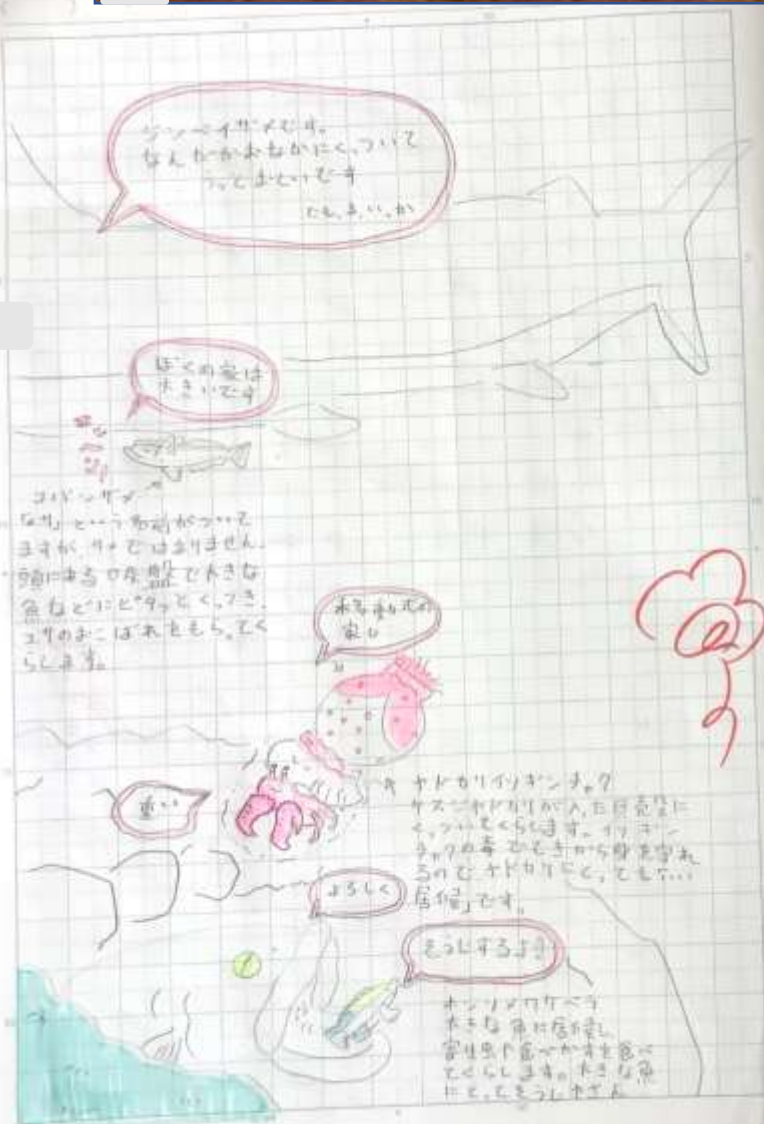 ジンベイザメです。
なんだかおなかにくっついて
うっとおしいです
でも、ま、いっか
ぼくの家は
大きいです
コバンザメ
「サメ」という名前がついて
ますが、サメではありません。
頭にある吸盤で大きな
魚などにピタッとくっつき、
エサのおこぼれをもらってく
らします。
移動式の
家し
重い
ヤドカリイソギンチャク
ヤスジヤドカリが入った貝売殻に
くっついてくらします。イソギン
チャクの毒でてきから身を守れ
るのでヤドカリにとってもいい
居候」です。
よろしく
そうじするよ
ホンソメワケベラ
大きな魚に居候し
寄生虫や食べかすを食べ
てくらします。大きな魚
にとってもそうじやさん